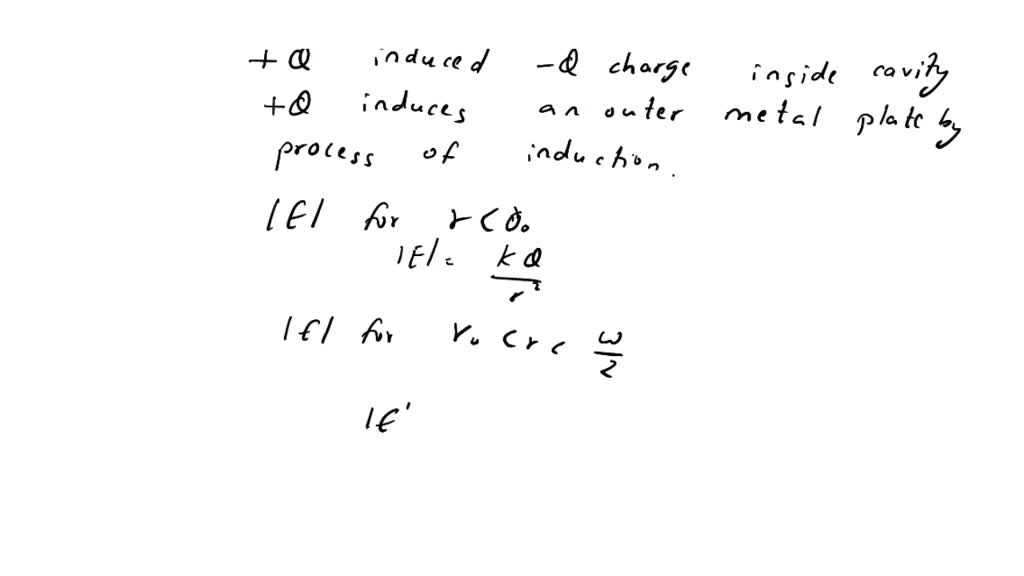 +Q induced -Q charge inside cavity
+Q induces an outer metal plate by
process of induction.
|E| for r < r₀
|E| = kQ/r²
|E| for r₀ < r < ω/2
|E'